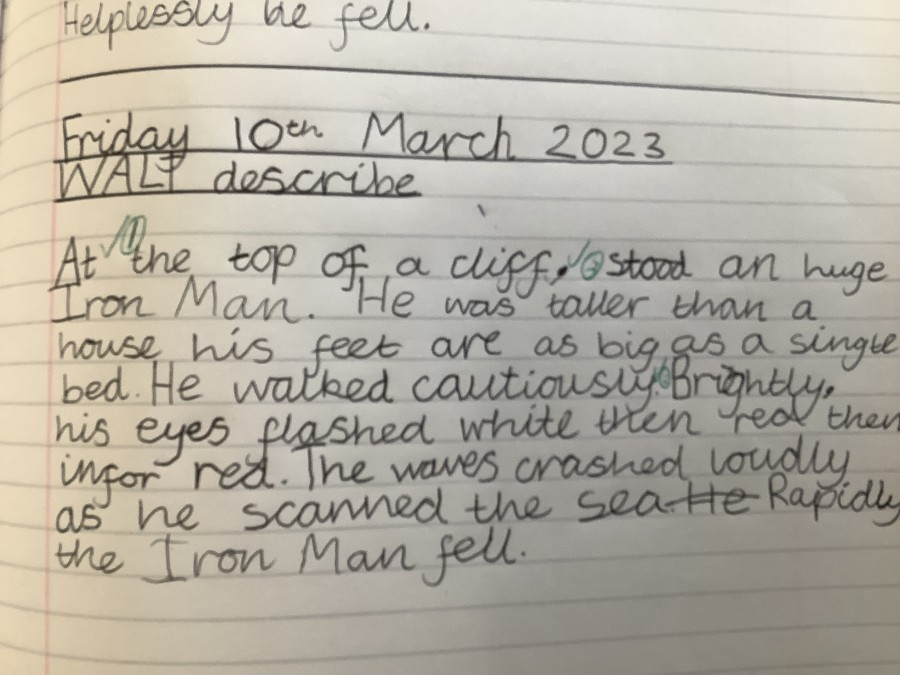 Helplessly he fell.
Friday 10th March 2023
WALT describe
At the top of a cliff, stood an huge
Iron Man. He was taller than a
house his feet are as big as a single
bed. He walked cautiously. Brightly,
his eyes flashed white then red then
infor red. The waves crashed loudly
as he scanned the sea He Rapidly
the Iron Man fell.